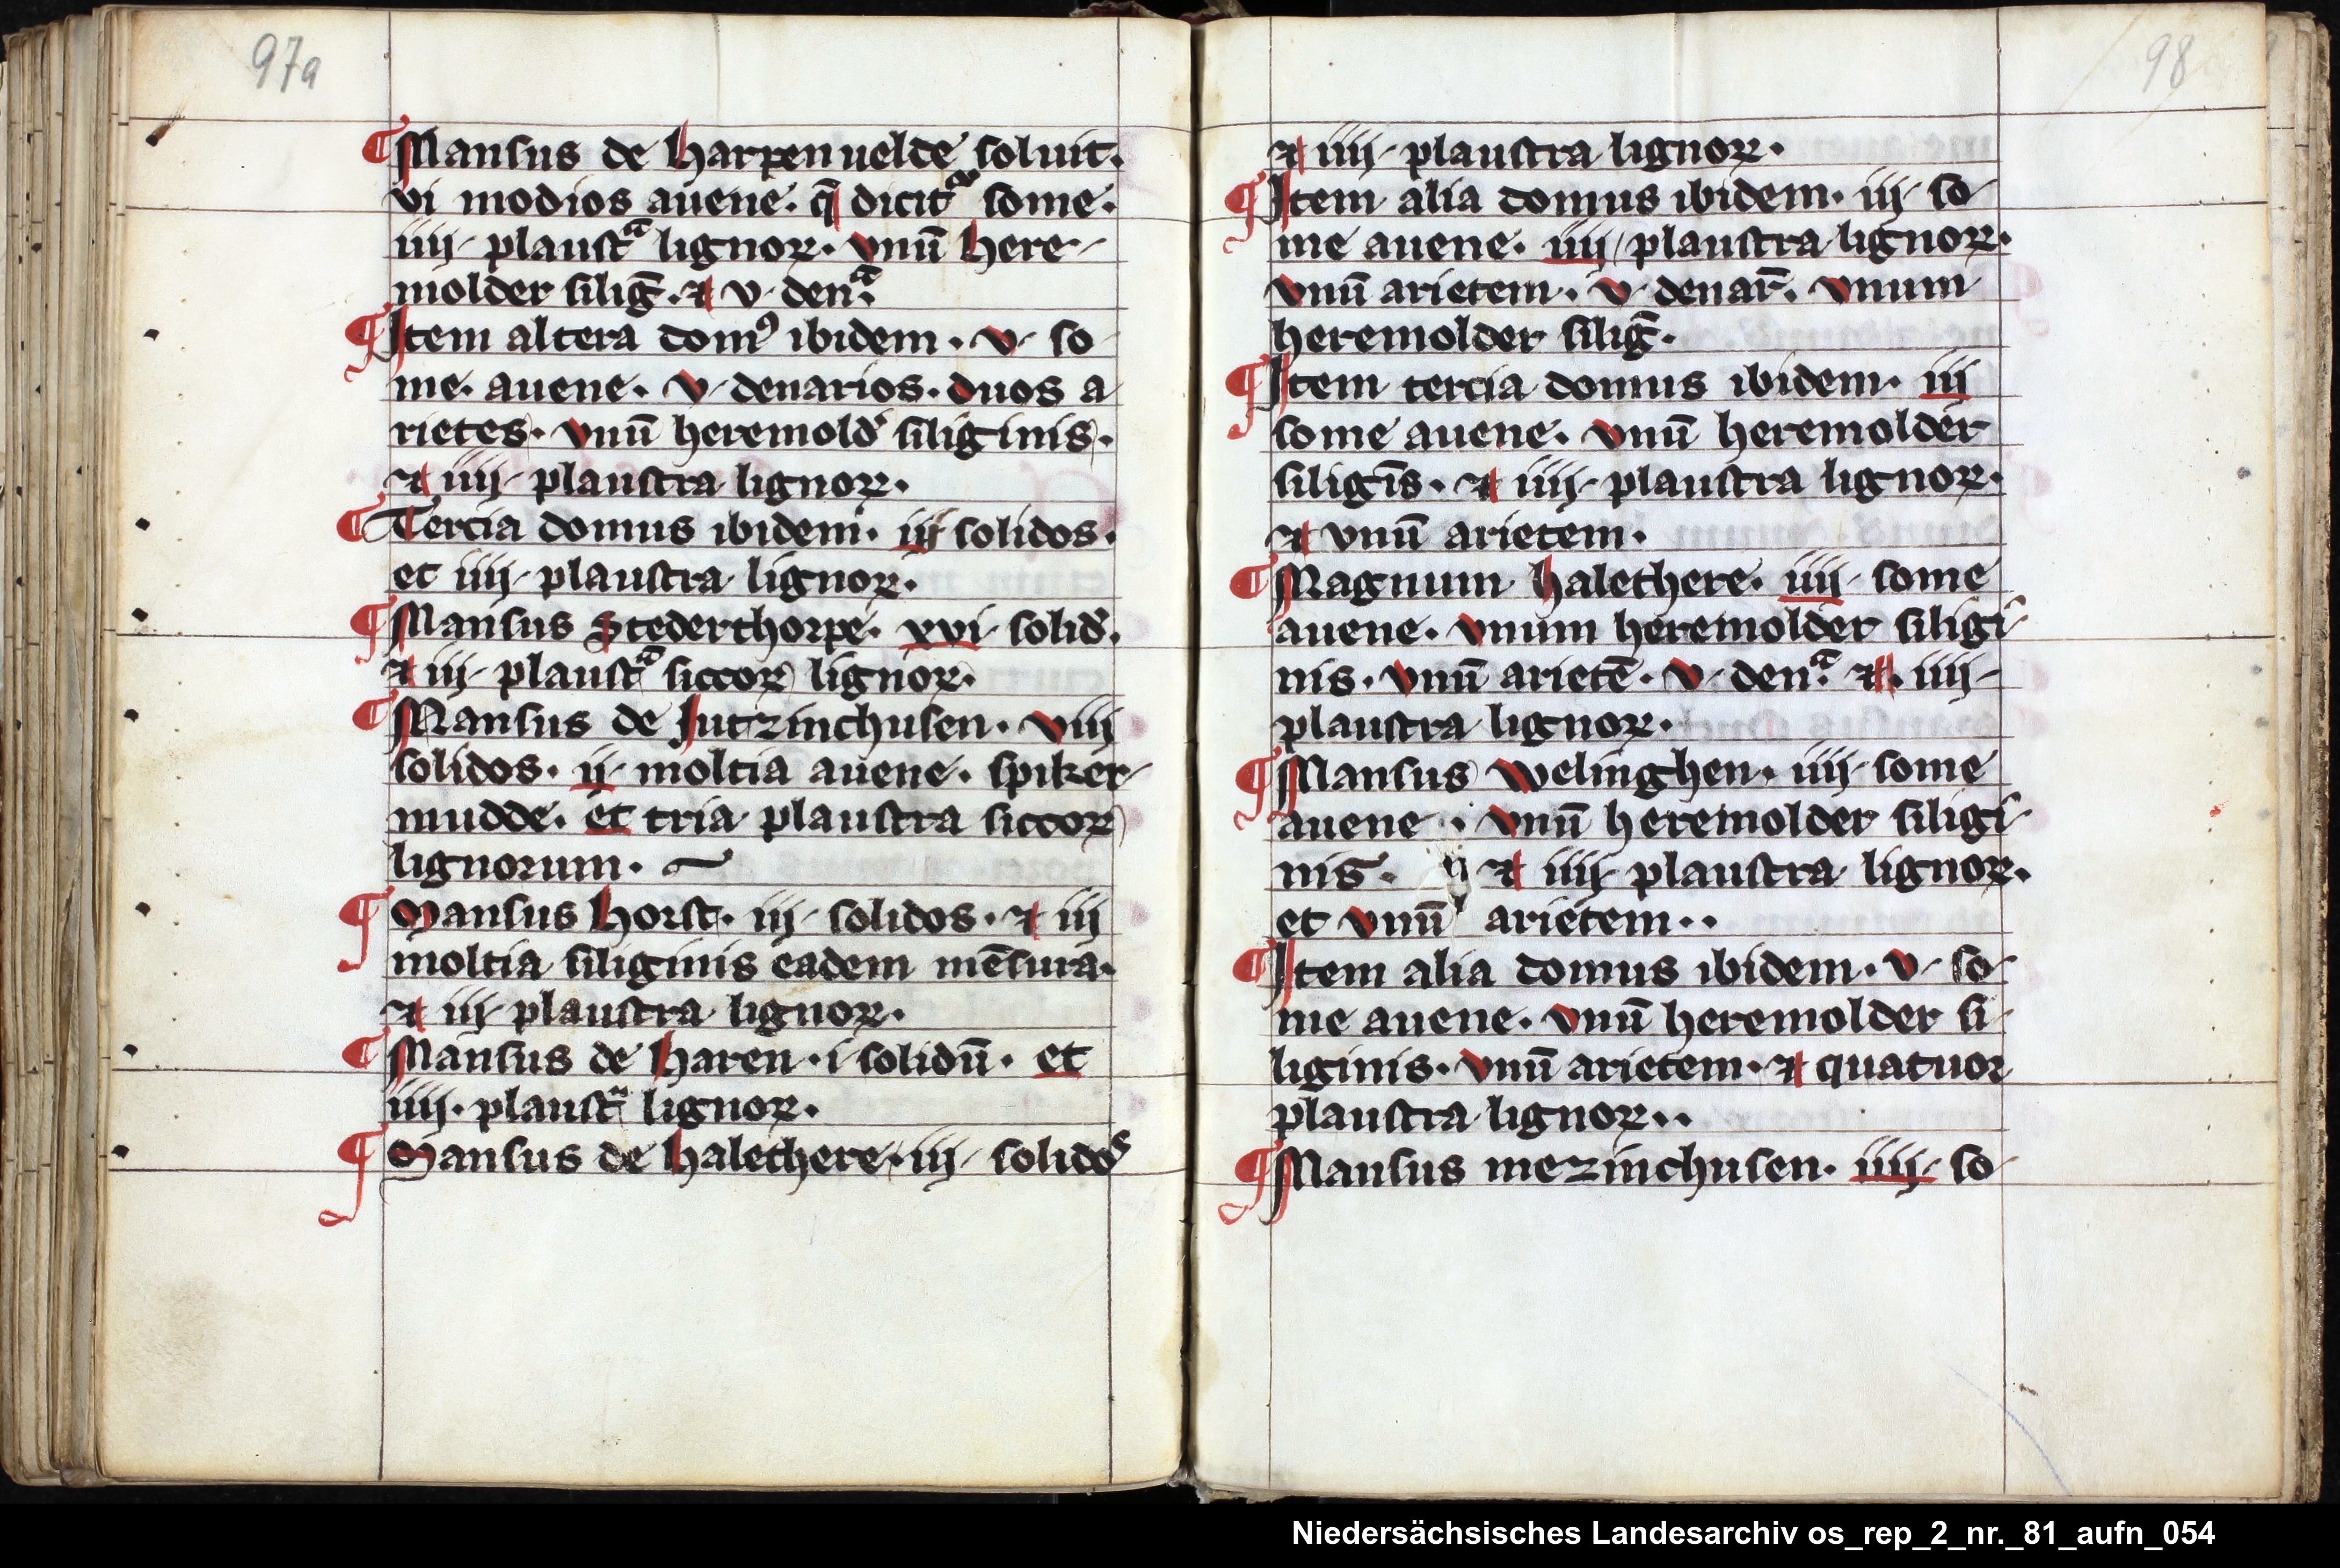 97a
¶ Mansus de harpenuelde soluit.
vi modios auene. q̄ dicitᵃ some.
iiij plaustᵃ lignoꝝ. vnū here-
molder siligꝭ. ⁊ v denᵃ.
¶ Item altera domꝰ ibidem. v so
me. auene. v denarios. duos a
rietes. vnū heremold̕ siliginis.
⁊ iiij plaustra lignoꝝ.
¶ Tercia domus ibidem. iij solidos.
et iiij plaustra lignoꝝ.
¶ Mansus Stederthorpe. xvi solid̕.
⁊ iij plaustᵃ siccoꝝ lignoꝝ.
¶ Mansus de Jutzinchusen. viij
solidos. ij moltia auene. spiker-
mudde. et tria plaustra siccoꝝ
lignorum.
¶ Mansus horst. iij solidos. ⁊ iij
moltia siliginis eadem mēsura.
⁊ iij plaustra lignoꝝ.
¶ Mansus de haren. i solidū. et
iiij. plaustᵃ lignoꝝ.
¶ Mansus de halethere. iij solidoˢ
98
⁊ iiij plaustra lignoꝝ.
¶ Item alia domus ibidem. iij so-
me auene. iiij plaustra lignoꝝ.
vnū arietem. v denar̄. vnum
heremolder siligꝭ.
¶ Item tercia domus ibidem. iij
some auene. vnū heremolder
siligīs. ⁊ iiij plaustra lignoꝝ.
⁊ vnū arietem.
¶ Magnum halethere. iiij some
auene. vnum heremolder siligi-
nis. vnū arietē. v denᵃ. ⁊. iiij
plaustra lignoꝝ.
¶ Mansus welinghen. iiij some
auene. vnū heremolder siligi-
nis. ⁊ iiij plaustra lignoꝝ.
et vnū arietem..
¶ Item alia domus ibidem. v so-
me auene. vnū heremolder si-
liginis. vnū arietem. ⁊ quatuor
plaustra lignoꝝ..
¶ Mansus mezinchusen. iiij so-
Niedersächsisches Landesarchiv os_rep_2_nr._81_aufn_054